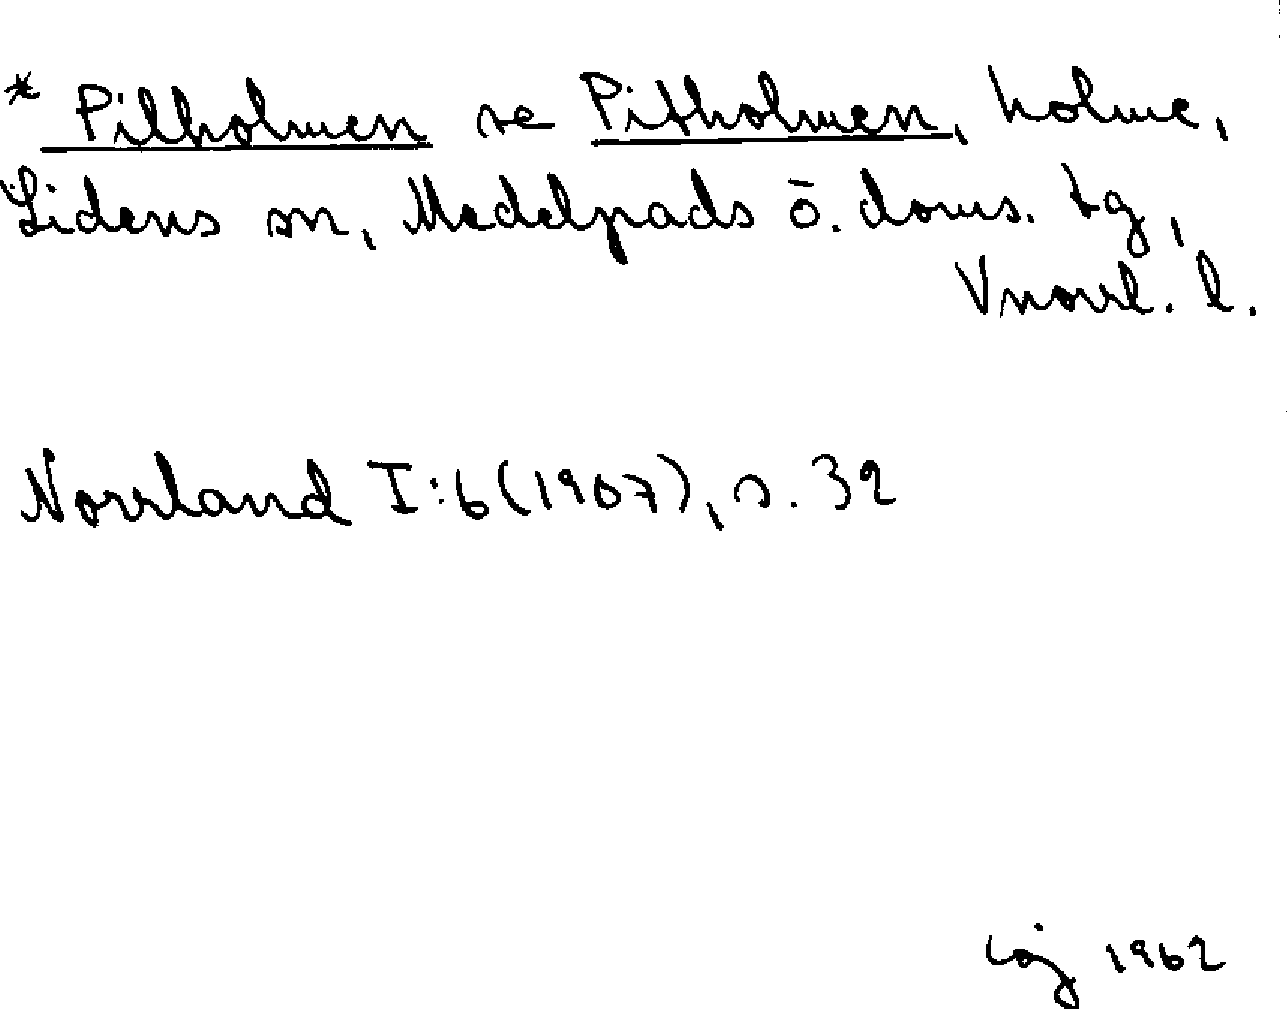 * Pilholmen se Pitholmen, holme,
Lidens sn, Medelpads ö. doms. tg,
Vnorrl. l.
Norrland I:6 (1907), s. 32
1962